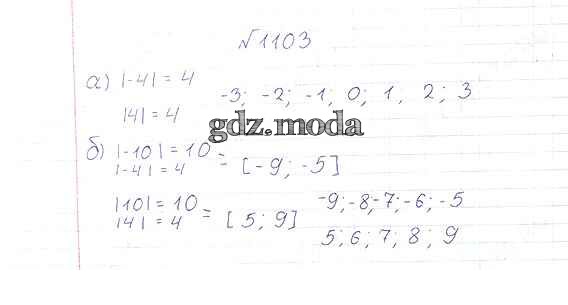 №1103
а) |-4| = 4
-3; -2; -1; 0; 1, 2; 3
|4| = 4
gdz.moda
б) |-10| = 10
|-4| = 4 = [-9; -5]
|10| = 10
|4| = 4 = [5; 9]
-9; -8; -7; -6; -5
5; 6; 7; 8; 9